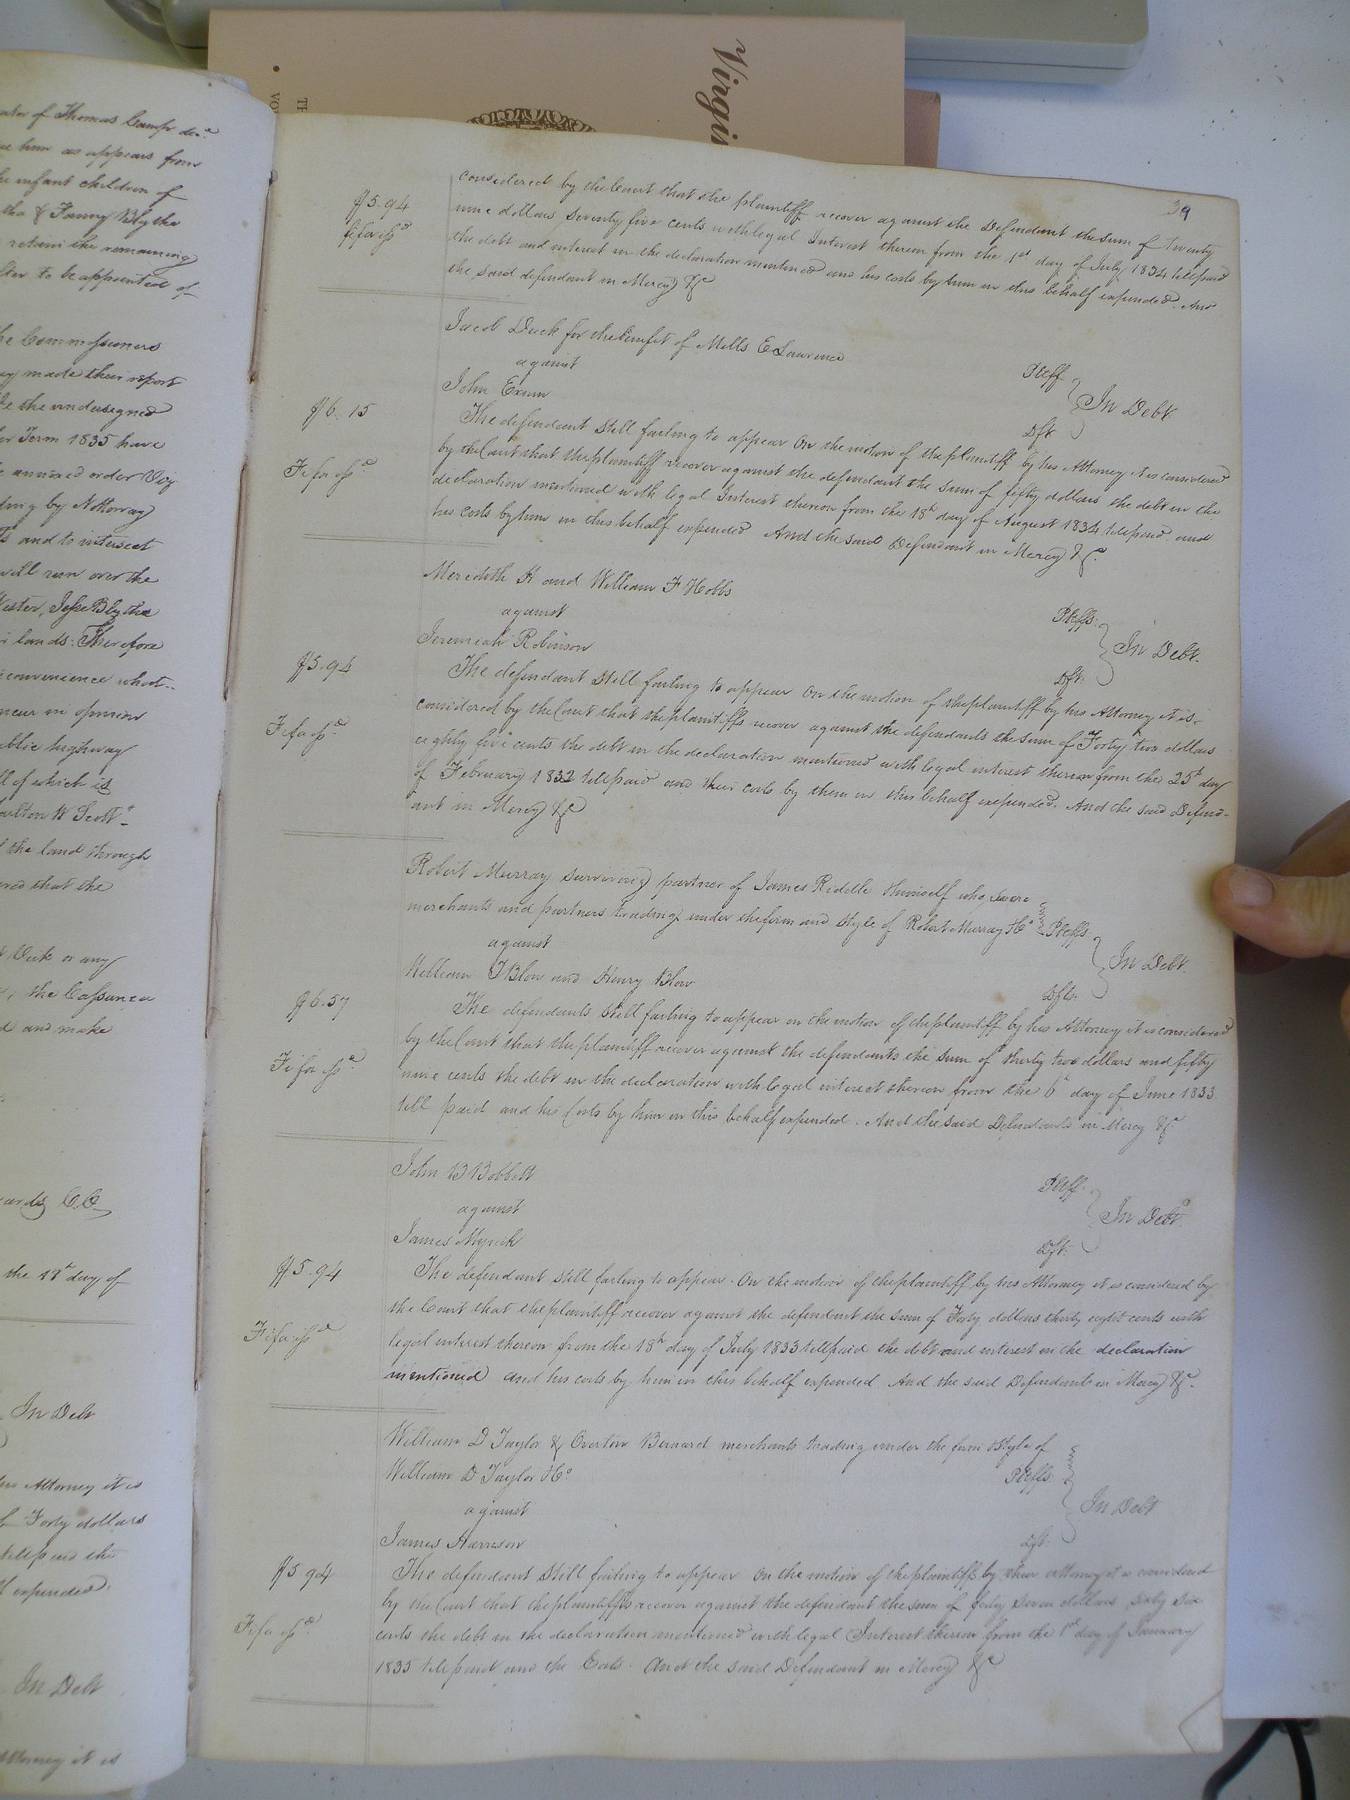 Virgi
ator of Thomas Camp dec.d
him as appears from
infant children of
& Fanny Blythe
retain the remaining
to be appointed of
Commissioners
made their report
the undersigned
Term 1835 have
annexed order
by Nottoway
and to intersect
will run over the
Jesse Blythe
lands. Therefore
convenience what-
in opinion
public highway
all of which is
W Scott
the land through
that the
or any
and make
C.C.
the 17th day of
In Debt
Attorney it is
Forty dollars
till paid the
expended.
In Debt
Attorney it is
39
considered by the Court that the plaintiff recover against the Defendant the sum of twenty
$5.94
nine dollars Seventy five cents with legal Interest thereon from the 1st day of July 1834 till paid
fi fa issd
the debt and interest in the declaration mentioned and his costs by him in this behalf expended. And
the said defendant in Mercy &c
Jacob Duck for the benefit of Mills E Lawrence
Plff
against
In Debt
John Exum
Dft
$6.15
The defendant Still failing to appear On the motion of the plaintiff by his Attorney it is considered
by the Court that the plaintiff recover against the defendant the Sum of fifty dollars the debt in the
Fi fa issd
declaration mentioned with legal Interest thereon from the 18th day of August 1834 till paid. and
his costs by him in this behalf expended And the said Defendant in Mercy &c.
Meredith H and William F Hobbs
Plffs.
against
In Debt.
Jeremiah Robinson
Dft.
$5.94
The defendant Still failing to appear On the motion of the plaintiff by his Attorney it is
considered by the Court that the plaintiffs recover against the defendants the sum of Forty two dollars
Fi fa issd
eighty five cents the debt in the declaration mentioned with legal interest thereon from the 25th day
of February 1832 till paid and their costs by them in this behalf expended. And the said Defend-
ant in Mercy &c
Robert Murray surviving partner of James Riddle & himself who were
merchants and partners trading under the firm and style of Robert Murray & Co
Plffs
against
In Debt.
William T Blow and Henry Blow
Dfts.
$6.57
The defendants Still failing to appear on the motion of the plaintiff by his Attorney it is considered
by the Court that the plaintiff recover against the defendants the sum of thirty two dollars and fifty
Fi fa issd
nine cents the debt in the declaration with legal interest thereon from the 6th day of June 1833
till paid and his Costs by him in this behalf expended. And the said Defendants in Mercy &c
John B Bobbett
Plff.
against
In Debt.
James Myrick
Dft.
$5.94
The defendant Still failing to appear. On the motion of the plaintiff by his Attorney it is considered by
the Court that the plaintiff recover against the defendant the sum of Forty dollars thirty eight cents with
Fi fa issd
legal interest thereon from the 18th day of July 1833 till paid the debt and interest in the declaration
mentioned and his costs by him in this behalf expended. And the said Defendant in Mercy &c.
William D Taylor & Overton Bernard merchants trading under the firm & Style of
William D Taylor & Co
Plffs
against
In Debt
James Harrison
Dft.
$5 94
The defendant Still failing to appear On the motion of the plaintiffs by their attorney it is considered
by the Court that the plaintiffs recover against the defendant the sum of forty seven dollars sixty six
Fi fa issd
cents the debt in the declaration mentioned with legal Interest thereon from the 1st day of January
1833 till paid and the Costs. And the said Defendant in Mercy &c